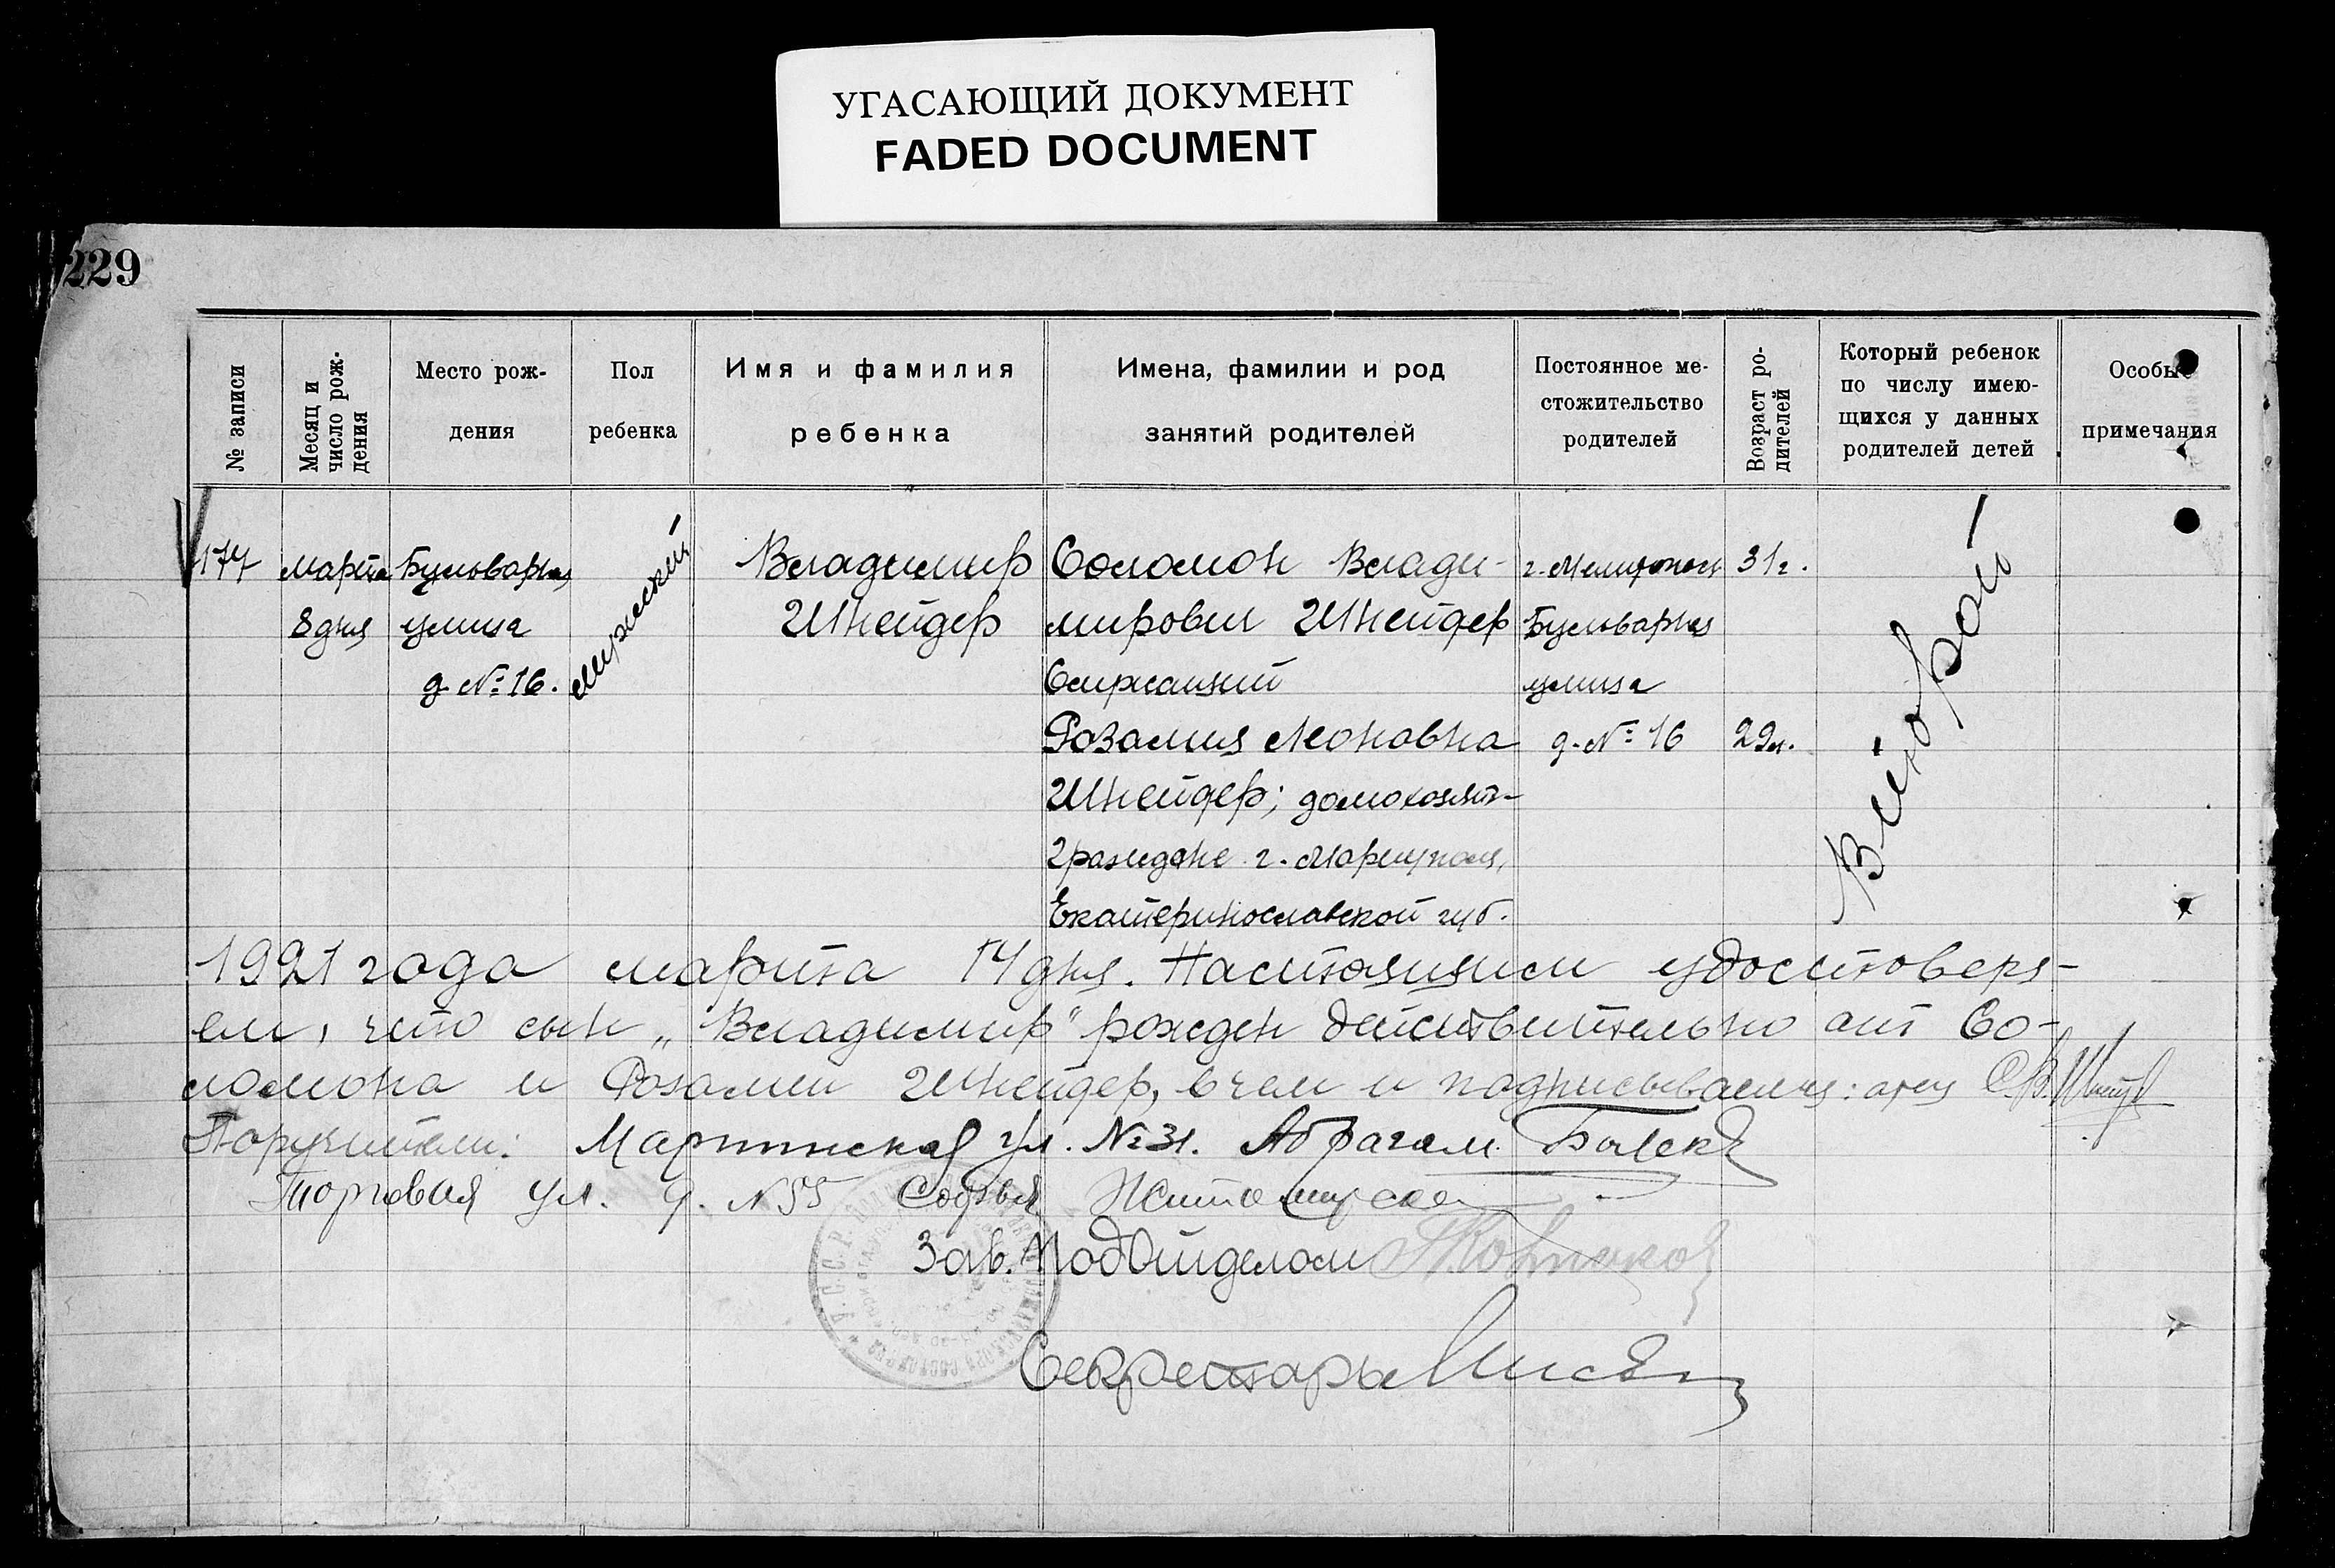 УГАСАЮЩИЙ ДОКУМЕНТ
FADED DOCUMENT
229
№ записи
Месяц и
число рож-
дения
Место рож-
дения
Пол
ребенка
Имя и фамилия
ребенка
Имена, фамилии и род
занятий родителей
Постоянное ме-
стожительство
родителей
Возраст ро-
дителей
Который ребенок
по числу имею-
щихся у данных
родителей детей
Особые
примечания
177
марта
8 дня
Бульварная
улица
д. № 16.
мужеский
Владимир
Шнейдер
Соломон Влади-
мирович Шнейдер
Служащий
Розалия Леоновна
Шнейдер;
граждане г. Мариуполя,
Екатеринославской губ.
г. Мелитополь
Бульварная
улица
д. № 16
31 г.
29 л.
Второй
1921 года марта 14 дня. Настоящим удостоверя-
ем, что сын „Владимир" рожден действительно от Со-
ломона и Розалии Шнейдер, в чем и подписываемся: отец
Поручители: Мариинская ул. № 31. Абрагам
Торговая ул. д. N 55 Софья Житомирская
Зав. Подотделом
Секретарь